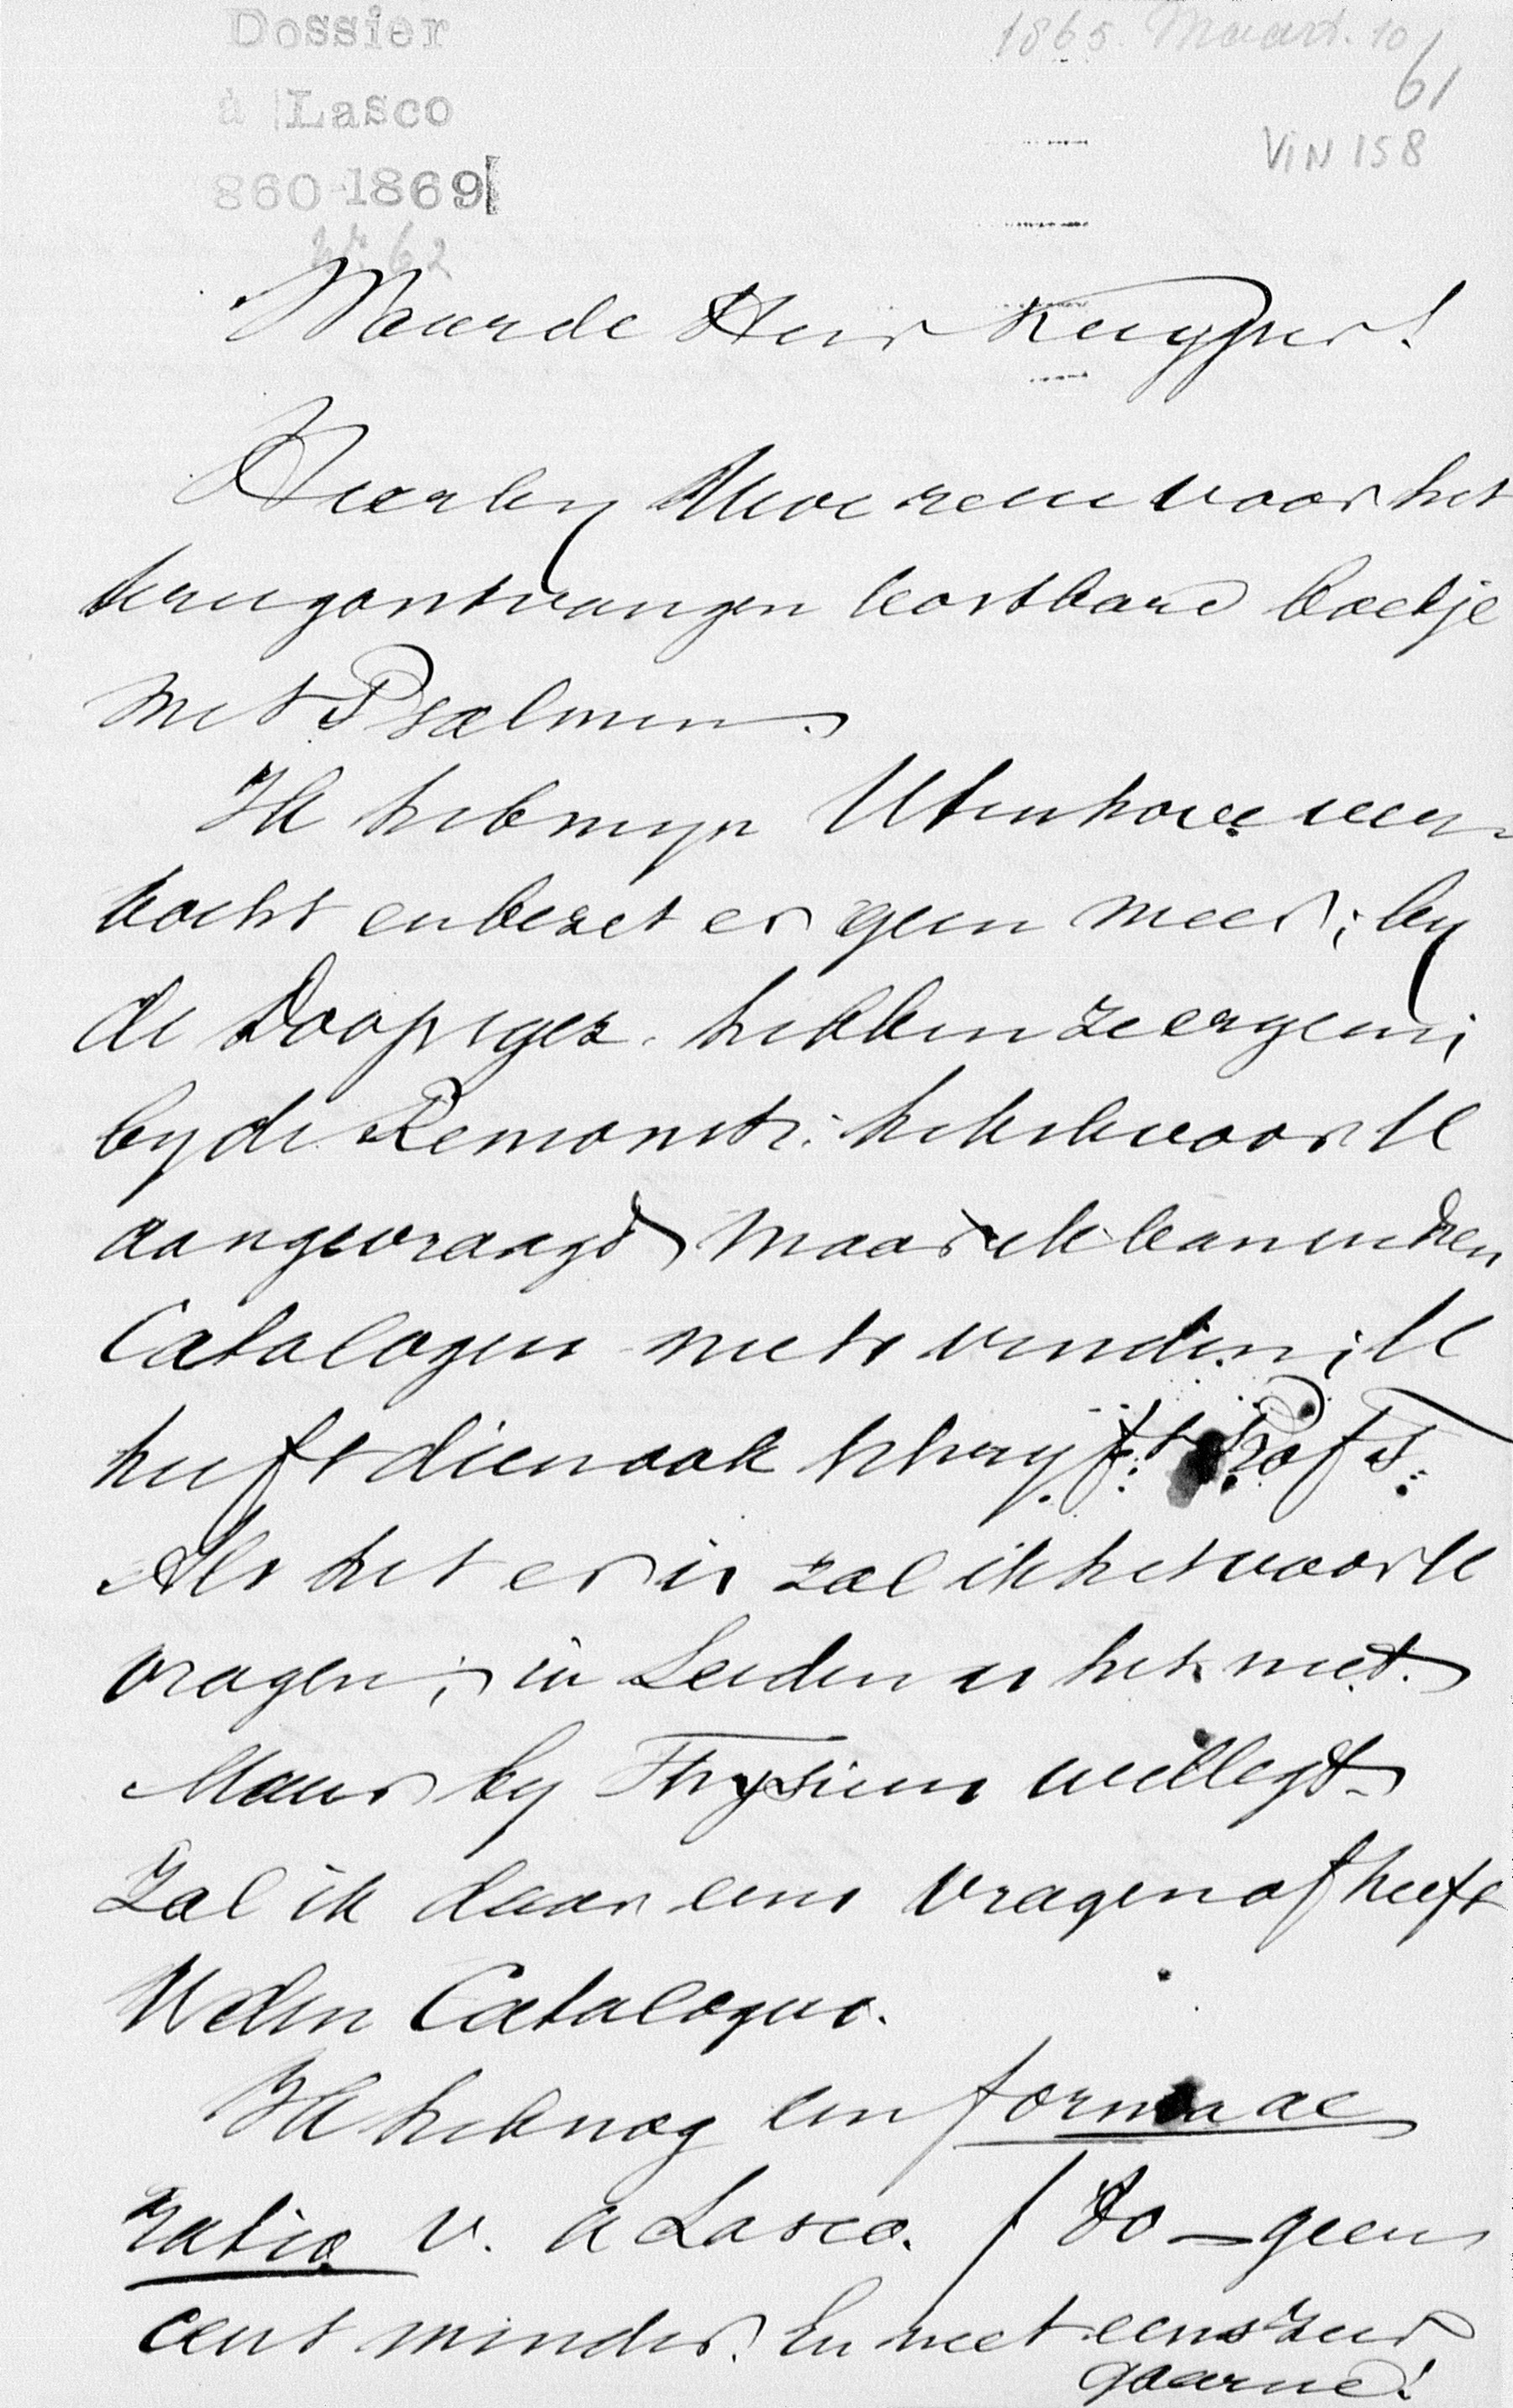 Dossier
à Lasco
860-1869
N° 62
1865. Maart. 10
61
VIN 158
Waarde Heer Kuyper!
Hierby Uwe reçu voor het
terugontvangen kostbare boekje
met Psalmen.
Ik heb myn Utenhove ver-
kocht en bezet er geen meer; by
de Doopsgez. hebben ze er geen;
by de Remonstr. heb ik voor U
aangevraagd, maar ik kan in den
Catalogen niets vinden; U
heeft dien ook schryft Prof T.
Als het er is zal ik het voor U
vragen; in Leiden is het niet.
Maar by Thysius wellegt
Zal ik daar eens vragen of heeft
U den Catalogus.
Ik heb nog een forma ac
ratio v. a Lasco. f 80 — geen
cent minder. En niet eens zeer
gaarne!